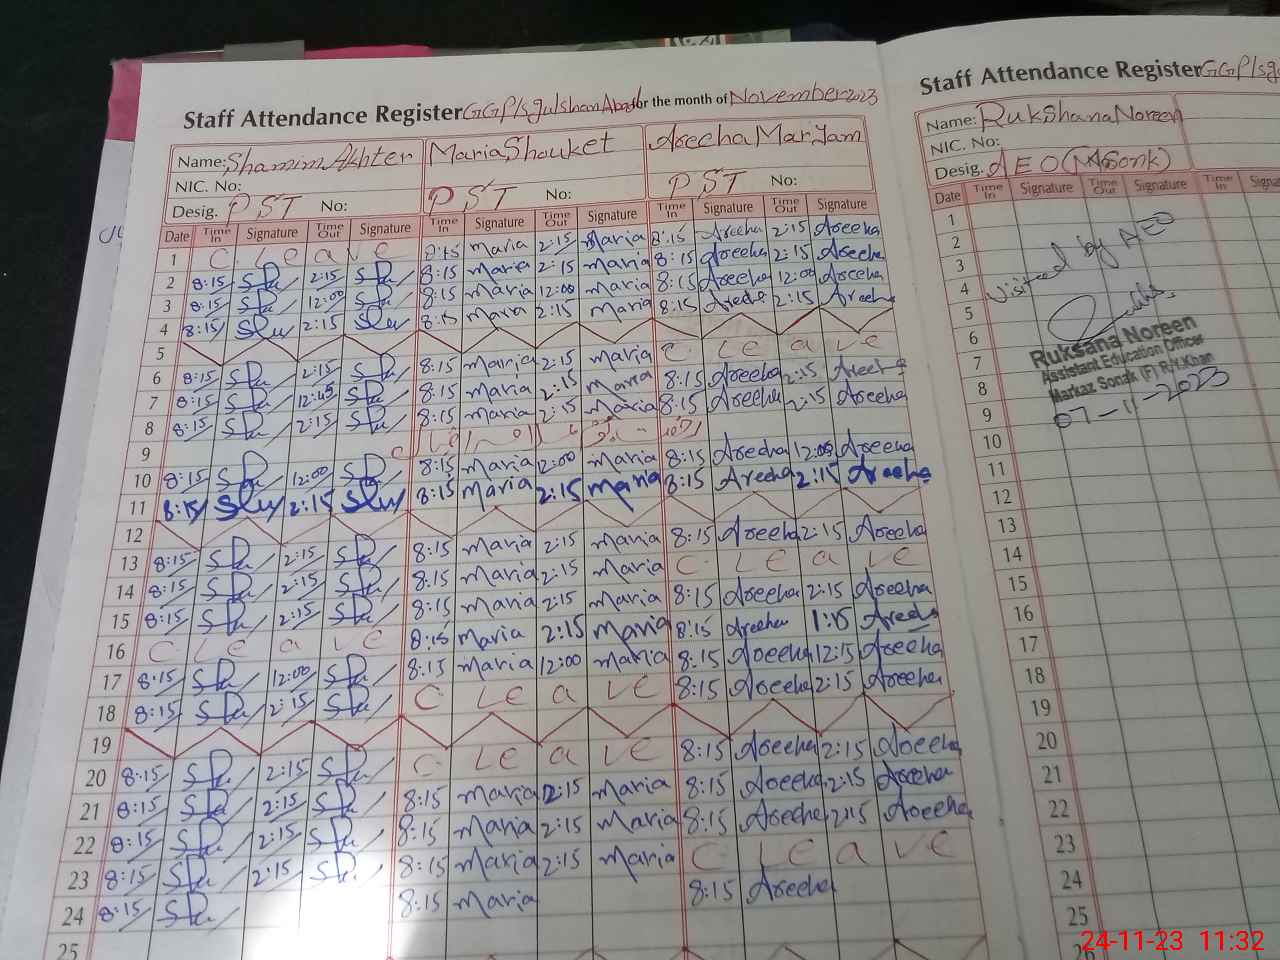 Staff Attendance Register GGP/s gulshan Abad for the month of November 2023
Name: Shamim Akhter Maria Shouket Areeha Maryam
NIC. No:
Desig. PST No: PST No: PST No:
Date Time In Signature Time Out Signature Time In Signature Time Out Signature Time In Signature Time Out Signature
1 C. Leave 8:15 Maria 2:15 Maria 8:15 Areeha 2:15 Areeha
2 8:15 2:15 8:15 Maria 2:15 Maria 8:15 Areeha 2:15 Areeha
3 8:15 12:00 8:15 Maria 12:00 Maria 8:15 Areeha 12:00 Areeha
4 8:15 2:15 8:15 Maria 2:15 Maria 8:15 Areeha 2:15 Areeha
5
6 8:15 2:15 8:15 Maria 2:15 Maria C Leave
7 8:15 12:45 8:15 Maria 2:15 Maria 8:15 Areeha 2:15 Areeha
8 8:15 2:15 8:15 Maria 2:15 Maria 8:15 Areeha 2:15 Areeha
9
10 8:15 12:00 8:15 Maria 12:00 Maria 8:15 Areeha 12:00 Areeha
11 8:15 2:15 8:15 Maria 2:15 Maria 8:15 Areeha 2:15 Areeha
12
13 8:15 2:15 8:15 Maria 2:15 Maria 8:15 Areeha 2:15 Areeha
14 8:15 2:15 8:15 Maria 2:15 Maria C. Leave
15 8:15 2:15 8:15 Maria 2:15 Maria 8:15 Areeha 2:15 Areeha
16 C. Leave 8:15 Maria 2:15 Maria 8:15 Areeha 1:15 Areeha
17 8:15 12:00 8:15 Maria 12:00 Maria 8:15 Areeha 12:15 Areeha
18 8:15 2:15 C Leave 8:15 Areeha 2:15 Areeha
19
20 8:15 2:15 C. Leave 8:15 Areeha 2:15 Areeha
21 8:15 2:15 8:15 Maria 2:15 Maria 8:15 Areeha 2:15 Areeha
22 8:15 2:15 8:15 Maria 2:15 Maria 8:15 Areeha 2:15 Areeha
23 8:15 2:15 8:15 Maria 2:15 Maria C. Leave
24 8:15 8:15 Maria 8:15 Areeha
25
Staff Attendance Register GGP/s gu
Name: Rukshana Noreen
NIC. No:
Desig. AEO (M Sonk)
Date Time In Signature Time Out Signature Time In Signa
1
2
3
4
5
6
7
8
9
10
11
12
13
14
15
16
17
18
19
20
21
22
23
24
25
26
Visited by AEO
Ruksana Noreen
Assistant Education Officer
Markaz Sonak (F) R.Y.Khan
07-11-2023
24-11-23 11:32